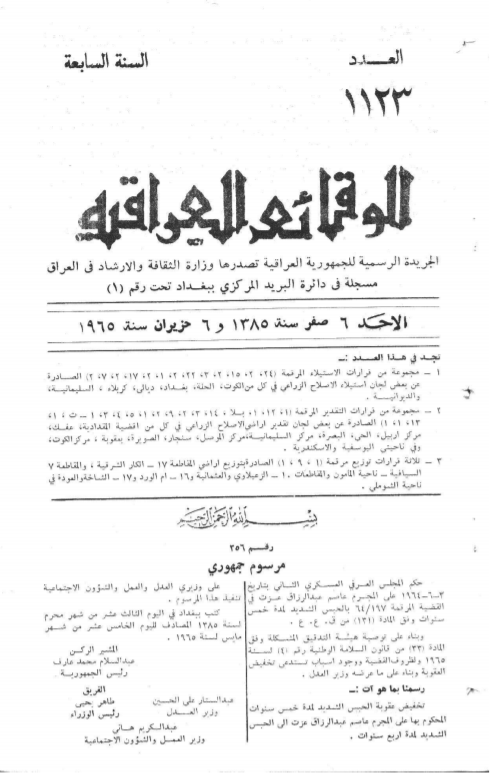 العدد
١١٢٣
السنة السابعة
الوقائع العراقية
الجريدة الرسمية للجمهورية العراقية تصدرها وزارة الثقافة والارشاد فى العراق
مسجلة فى دائرة البريد المركزي ببغداد تحت رقم (١)
الاحد ٦ صفر سنة ١٣٨٥ و ٦ حزيران سنة ١٩٦٥
تجد في هذا العدد :ــ
١ – مجموعة من قرارات الاستيلاء المرقمة الصادرة
عن بعض لجان استيلاء الاصلاح الزراعي في كل من الكوت، الحلة، بغداد، ديالى، كربلاء ، السليمانية،
والديوانية .
٢ – مجموعة من قرارات التقدير المرقمة
الصادرة عن بعض لجان تقدير اراضي الاصلاح الزراعي في كل من اقضية المقدادية، عفك،
مركز اربيل، الحى، البصرة، مركز السليمانية، مركز الموصل، سنجار، الصويرة، بعقوبة ، مركز الكوت،
وفي ناحيتي اليوسفية والاسكندرية.
٣ – ثلاثة قرارات توزيع مرقمة (١ ، ٩ ، ١) الصادرة بتوزيع اراضي المقاطعة ١٧ – الكار الشرقية ، والمقاطعة ٧
السيافية – ناحية المأمون والمقاطعات ١٠ – الزعيلاوي والعثمانية و١٦ – ام الورد و١٧ – الشاخة والعودة في
ناحية الشوملي .
بسم الله الرحمن الرحيم
رقم ٣٥٦
مرسوم جمهوري
حكم المجلس العرفي العسكري الثاني بتاريخ
٣–٦–١٩٦٤ على المجرم عاصم عبدالرزاق عزت في
القضية المرقمة ٦٤/١٩٧ بالحبس الشديد لمدة خمس
سنوات وفق المادة (١٣١) من ق. ع. ع .
وبناء على توصية هيئة التدقيق المتشكلة وفق
المادة (٣٣) من قانون السلامة الوطنية رقم (٤) لسنة
١٩٦٥ ولظروف القضية ووجود اسباب تستدعى تخفيض
العقوبة وبناء على ما عرضه وزير العدل .
رسمنا بما هو آت :ــ
تخفيض عقوبة الحبس الشديد لمدة خمس سنوات
المحكوم بها على المجرم عاصم عبدالرزاق عزت الى الحبس
الشديد لمدة اربع سنوات .
على وزيري العدل والعمل والشؤون الاجتماعية
تنفيذ هذا المرسوم .
كتب ببغداد في اليوم الثالث عشر من شهر محرم
لسنة ١٣٨٥ المصادف لليوم الخامس عشر من شهر
مايس لسنة ١٩٦٥ .
المشير الركن
عبدالسلام محمد عارف
رئيس الجمهورية
الفريق
طاهر يحيى
رئيس الوزراء
عبدالستار علي الحسين
وزير العدل
عبدالكريم هاني
وزير العمل والشؤون الاجتماعية